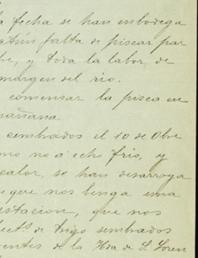 la fecha se han enbodega
falta de piscar par
be, y toda la labor, de
margen del rio.
comensar la pisca en
mañana
sembrados el 10 de Obre
mo no a echo frio, y
calor, se han desarroya
que nos benga una
estacion, que nos
de Trigo sembrados
entes de la Hda de S. Loren